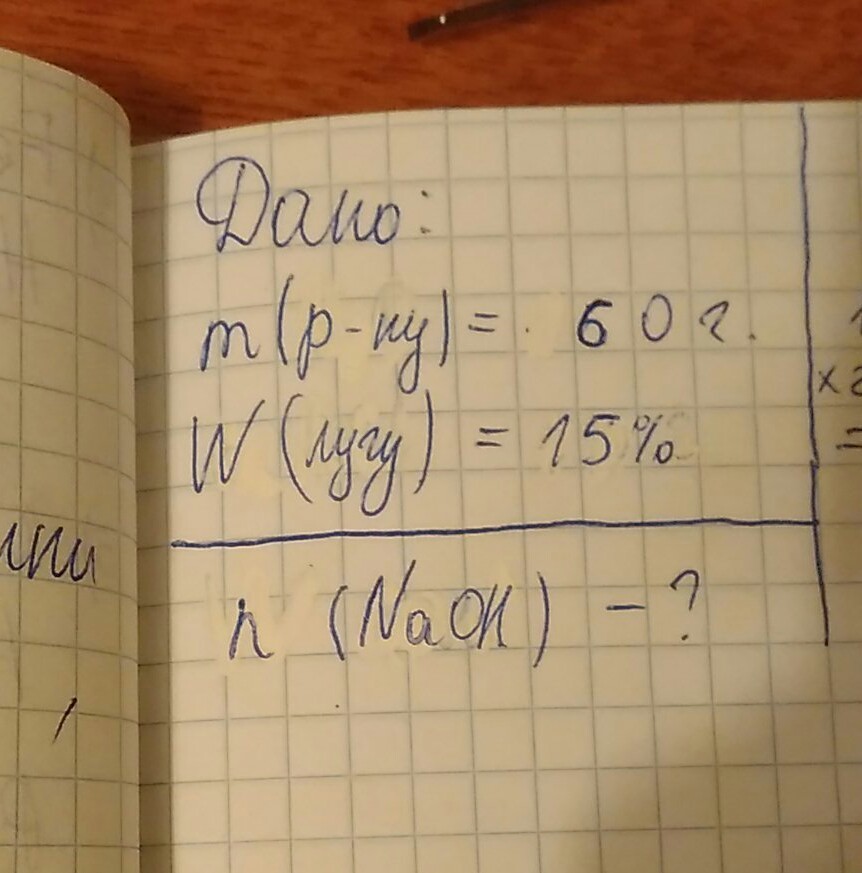 Дано:
m(р-ну) = 60 г.
W (лугу) = 15%
n (NaOH) - ?